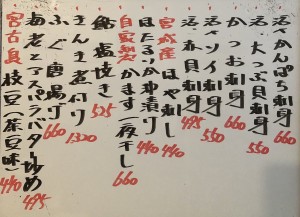 活〆かんぱち刺身 660
活大つぶ貝刺身 550
かつお刺身 660
活〆ソイ刺身 550
活赤貝刺身 495
宮城産 ほや刺し 440
ほたるいか沖漬け 440
自家製 かます一夜干し 660
鮎塩焼き 525
きんき煮付け 1320
ふぐ唐揚げ 660
海老とアスパラバター炒め 495
宮古真 枝豆(茶豆味) 440